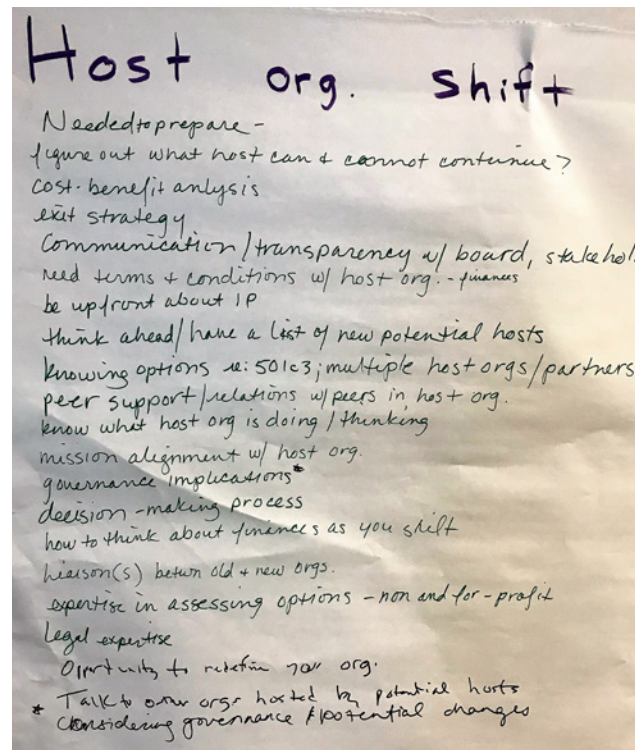 Host org. shift
Needed to prepare -
figure out what host can & cannot continue?
cost-benefit anlysis
exit strategy
Communication/transparency w/ board, stakehol
need terms & conditions w/ host org. - finances
be upfront about IP
think ahead/have a list of new potential hosts
knowing options re: 501c3; multiple host orgs/partners
peer support/relations w/ peers in host org.
know what host org is doing/thinking
mission alignment w/ host org.
governance implications*
decision-making process
how to think about finances as you shift
liaison(s) betwn old & new orgs.
expertise in assessing options - non and for-profit
Legal expertise
Opportunity to redefine your org.
* Talk to other orgs hosted by potential hosts
considering governance & potential changes